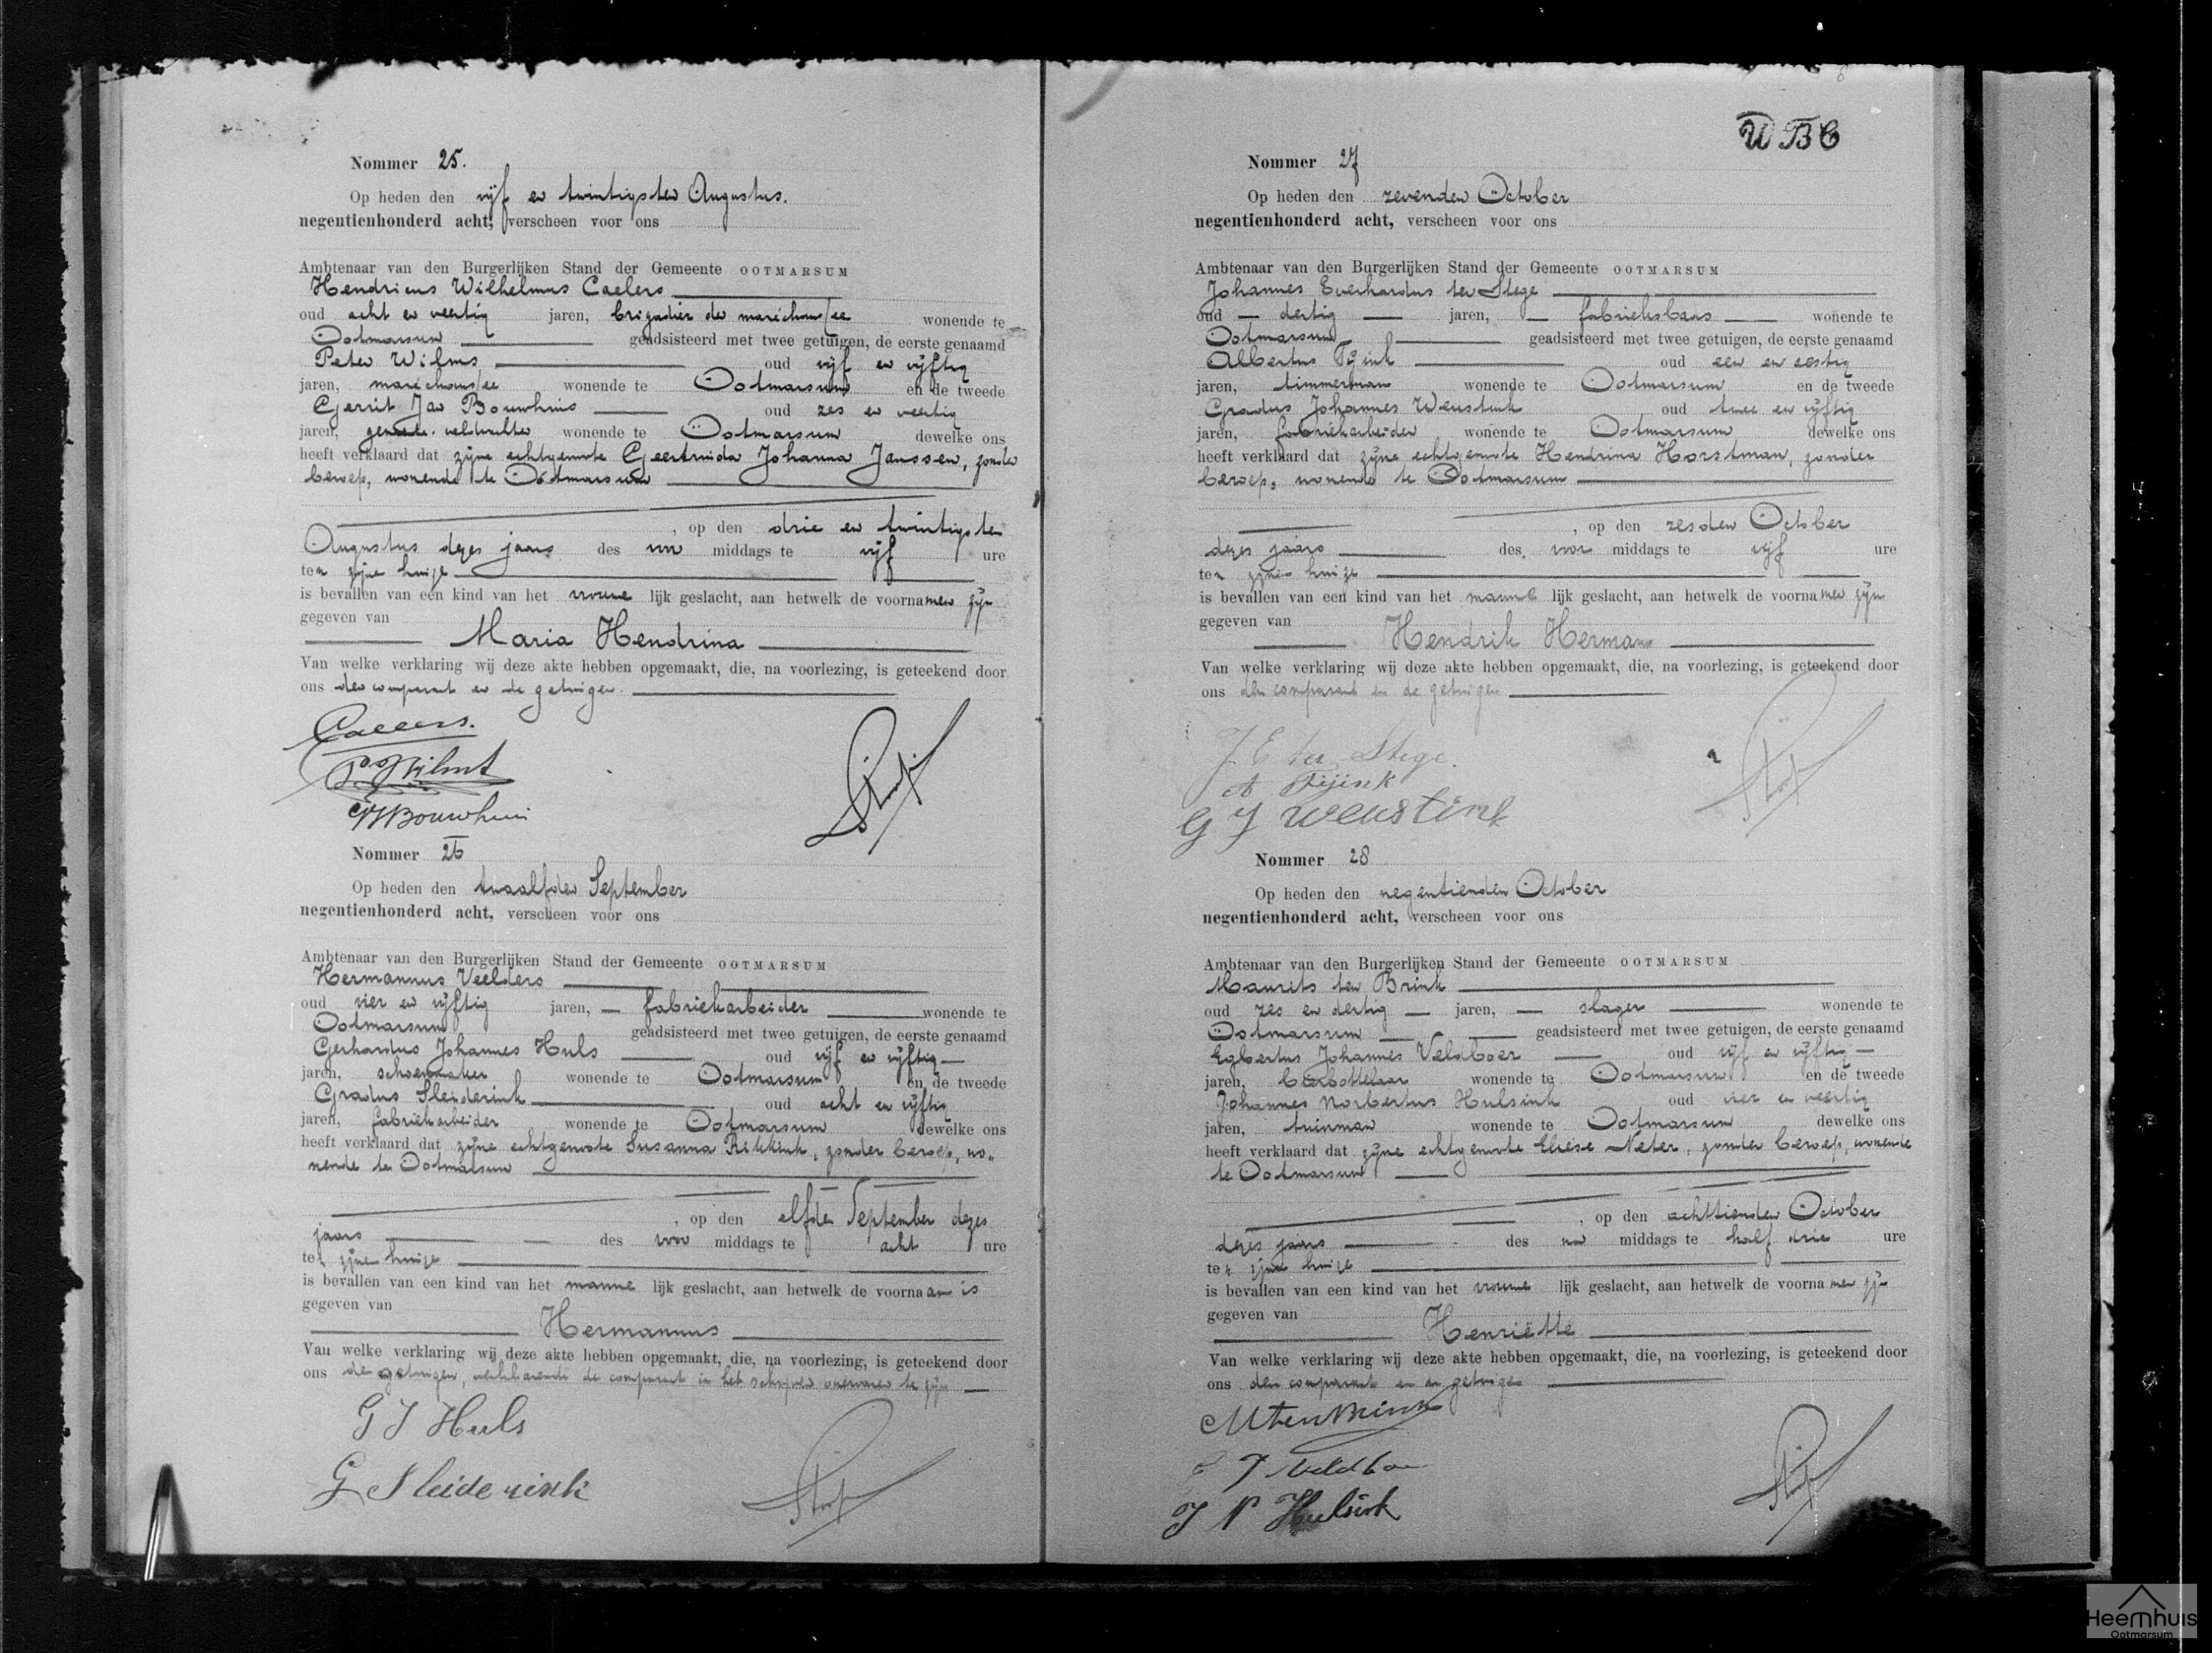 Nommer 25.
Op heden den vijf en twintigsten Augustus.
negentienhonderd acht, verscheen voor ons
Ambtenaar van den Burgerlijken Stand der Gemeente OOTMARSUM
Hendricus Wilhelmus Caelers
oud acht en veertig jaren, brigadier der maréchaussee wonende te
Ootmarsum geadsisteerd met twee getuigen, de eerste genaamd
Peter Wilms oud vijf en vijftig
jaren, maréchaussee wonende te Ootmarsum en de tweede
Gerrit Jan Bouwhuis oud zes en veertig
jaren, gemeente veldwachter wonende te Ootmarsum dewelke ons
heeft verklaard dat zijne echtgenoote Geertruida Johanna Janssen, zonder
beroep, wonende te Ootmarsum
, op den drie en twintigsten
Augustus dezes jaars des voor middags te vijf ure
ten zijne huize
is bevallen van een kind van het vrouwe lijk geslacht, aan hetwelk de voornamen zijn
gegeven van
Maria Hendrina
Van welke verklaring wij deze akte hebben opgemaakt, die, na voorlezing, is geteekend door
ons den comparant en de getuigen.
Caelers.
P. Wilms
GJ Bouwhuis
Nommer 26
Op heden den twaalfden September
negentienhonderd acht, verscheen voor ons
Ambtenaar van den Burgerlijken Stand der Gemeente OOTMARSUM
Hermannus Veelders
oud vier en vijftig jaren, fabriekarbeider wonende te
Ootmarsum geadsisteerd met twee getuigen, de eerste genaamd
Gerhardus Johannes Huls oud vijf en vijftig
jaren, schoenmaker wonende te Ootmarsum en de tweede
Gradus Sleiderink oud acht en vijftig
jaren, fabriekarbeider wonende te Ootmarsum dewelke ons
heeft verklaard dat zijne echtgenoote Susanna Rikkink, zonder beroep, wo„
nende te Ootmarsum
, op den elfden September dezes
jaars des voor middags te acht ure
ten zijne huize
is bevallen van een kind van het manne lijk geslacht, aan hetwelk de voornaam is
gegeven van
Hermannus
Van welke verklaring wij deze akte hebben opgemaakt, die, na voorlezing, is geteekend door
ons de getuigen, verklarende de comparant in het schrijven onervaren te zijn
G J Huls
G Sleiderink
UBC
Nommer 27
Op heden den zevenden October
negentienhonderd acht, verscheen voor ons
Ambtenaar van den Burgerlijken Stand der Gemeente OOTMARSUM
Johannes Everhardus ter Stege
oud dertig jaren, fabrieksbaas wonende te
Ootmarsum geadsisteerd met twee getuigen, de eerste genaamd
Albertus Tijink oud een en zestig
jaren, timmerman wonende te Ootmarsum en de tweede
Gradus Johannes Weustink oud twee en vijftig
jaren, fabriekarbeider wonende te Ootmarsum dewelke ons
heeft verklaard dat zijne echtgenoote Hendrina Horstman, zonder
beroep, wonende te Ootmarsum
, op den zesden October
dezes jaars des voor middags te vijf ure
ten zijne huize
is bevallen van een kind van het manne lijk geslacht, aan hetwelk de voornamen zijn
gegeven van
Hendrik Herman
Van welke verklaring wij deze akte hebben opgemaakt, die, na voorlezing, is geteekend door
ons den comparant en de getuigen
J E ter Stege.
A Tijink
G J Weustink
Nommer 28
Op heden den negentienden October
negentienhonderd acht, verscheen voor ons
Ambtenaar van den Burgerlijken Stand der Gemeente OOTMARSUM
Maurits ten Brink
oud zes en dertig jaren, slager wonende te
Ootmarsum geadsisteerd met twee getuigen, de eerste genaamd
Egbertus Johannes Veldboer oud vijf en vijftig
jaren, bierbottelaar wonende te Ootmarsum en de tweede
Johannes Norbertus Hulsink oud vier en veertig
jaren, tuinman wonende te Ootmarsum dewelke ons
heeft verklaard dat zijne echtgenoote Eliese Neter, zonder beroep, wonende
te Ootmarsum
, op den achttienden October
dezes jaars des na middags te half drie ure
ten zijne huize
is bevallen van een kind van het vrouwe lijk geslacht, aan hetwelk de voornamen zijn
gegeven van
Henriëtte
Van welke verklaring wij deze akte hebben opgemaakt, die, na voorlezing, is geteekend door
ons den comparant en de getuigen
M ten Brink
E J Veldboer
J N Hulsink
Heemhuis
Ootmarsum